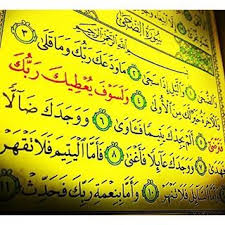 سُورَةُ الضُّحَى
بِسْمِ اللَّهِ الرَّحْمَٰنِ الرَّحِيمِ
وَالضُّحَىٰ ١ وَاللَّيْلِ إِذَا سَجَىٰ ٢ مَا وَدَّعَكَ رَبُّكَ وَمَا قَلَىٰ ٣
خَيْرٌ لَّكَ مِنَ الْأُولَىٰ ٤ وَلَسَوْفَ يُعْطِيكَ رَبُّكَ
فَتَرْضَىٰ ٥ أَلَمْ يَجِدْكَ يَتِيمًا فَآوَىٰ ٦ وَوَجَدَكَ ضَالًّا
فَهَدَىٰ ٧ وَوَجَدَكَ عَائِلًا فَأَغْنَىٰ ٨ فَأَمَّا الْيَتِيمَ فَلَا تَقْهَرْ
وَأَمَّا السَّائِلَ فَلَا تَنْهَرْ ١٠ وَأَمَّا بِنِعْمَةِ رَبِّكَ فَحَدِّثْ ١١